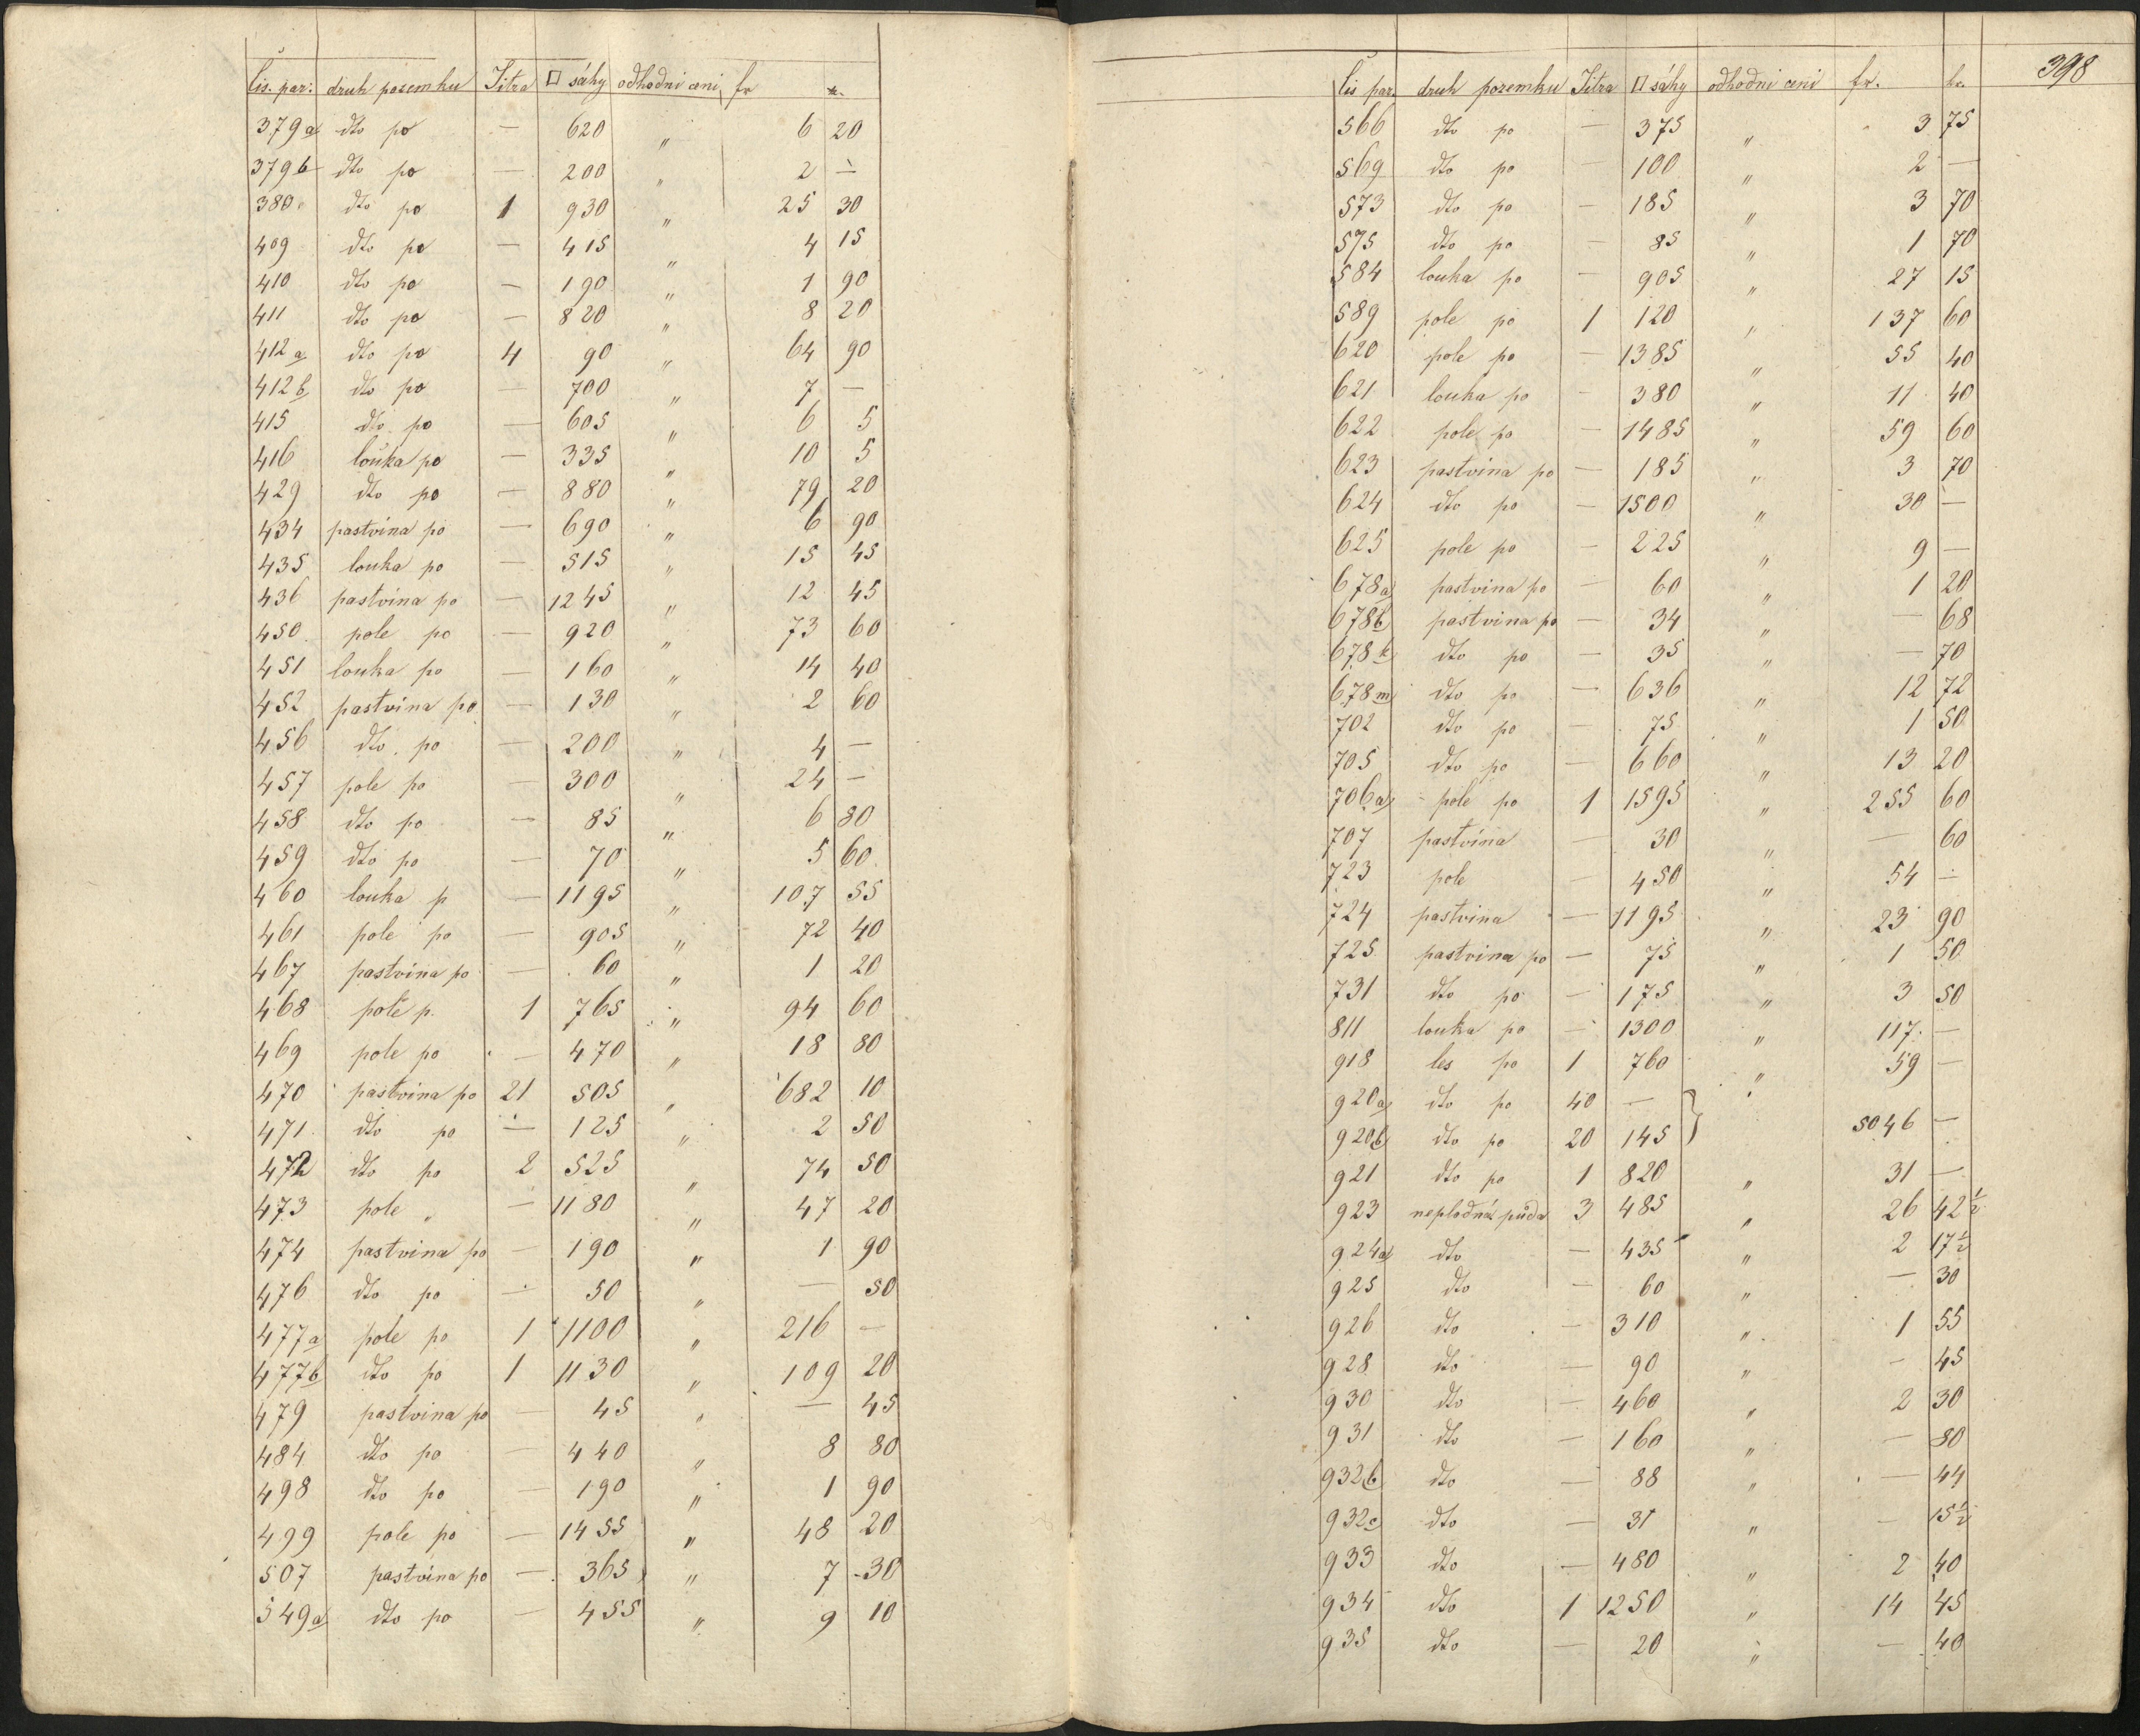 čis. par: druh pozemku Jitra □ sáhy odhodni ceni fr kr.
379a dto po — 620 " 6 20
379b dto po — 200 " 2 —
380 dto po 1 930 " 25 30
409 dto po — 415 " 4 15
410 dto po — 190 " 1 90
411 dto po — 820 " 8 20
412a dto po 4 90 " 64 90
412b dto po — 700 " 7 —
415 dto po — 605 " 6 5
416 louka po — 335 " 10 5
429 dto po — 880 " 79 20
434 pastvina po — 690 " 6 90
435 louka po — 515 " 15 45
436 pastvina po — 1245 " 12 45
450 pole po — 920 " 73 60
451 louka po — 160 " 14 40
452 pastvina po — 130 " 2 60
456 dto po — 200 " 4 —
457 pole po — 300 " 24 —
458 dto po — 85 " 6 80
459 dto po — 70 " 5 60
460 louka p — 1195 " 107 55
461 pole po — 905 " 72 40
467 pastvina po — 60 " 1 20
468 pole p. 1 765 " 94 60
469 pole po — 470 " 18 80
470 pastvina po 21 505 " 682 10
471 dto po — 125 " 2 50
472 dto po 2 525 " 74 50
473 pole " — 1180 " 47 20
474 pastvina po — 190 " 1 90
476 dto po — 50 " — 50
477a pole po 1 1100 " 216 —
477b dto po 1 1130 " 109 20
479 pastvina po — 45 " — 45
484 dto po — 440 " 8 80
498 dto po — 190 " 1 90
499 pole po — 1455 " 48 20
507 pastvina po — 365 " 7 30
549a dto po — 455 " 9 10
398
čis par. druh pozemku Jitra □ sáhy odhodni ceni fr. kr.
566 dto po — 375 " 3 75
569 dto po — 100 " 2 —
573 dto po — 185 " 3 70
575 dto po — 85 " 1 70
584 louka po — 905 " 27 15
589 pole po 1 120 " 137 60
620 pole po — 1385 " 55 40
621 louka po — 380 " 11 40
622 pole po — 1485 " 59 60
623 pastvina po — 185 " 3 70
624 dto po — 1500 " 30 —
625 pole po — 225 " 9 —
678a pastvina po — 60 " 1 20
678b pastvina po — 34 " — 68
678k dto po — 35 " — 70
678m dto po — 636 " 12 72
702 dto po — 75 " 1 50
705 dto po — 660 " 13 20
706a pole po 1 1595 " 255 60
707 pastvina — 30 " — 60
723 pole — 450 " 54 —
724 pastvina — 1195 " 23 90
725 pastvina po — 75 " 1 50
731 dto po — 175 " 3 50
811 louka po — 1300 " 117 —
918 les po 1 760 " 59 —
920a dto po 40 — "
920b dto po 20 145 } 5046 —
921 dto po 1 820 " 31 —
923 neplodná půda 3 485 " 26 42½
924a dto — 435 " 2 17½
925 dto — 60 " — 30
926 dto — 310 " 1 55
928 dto — 90 " — 45
930 dto — 460 " 2 30
931 dto — 160 " — 80
932b dto — 88 " — 44
932c dto — 31 " — 15½
933 dto — 480 " 2 40
934 dto 1 1250 " 14 45
935 dto — 20 " — 40